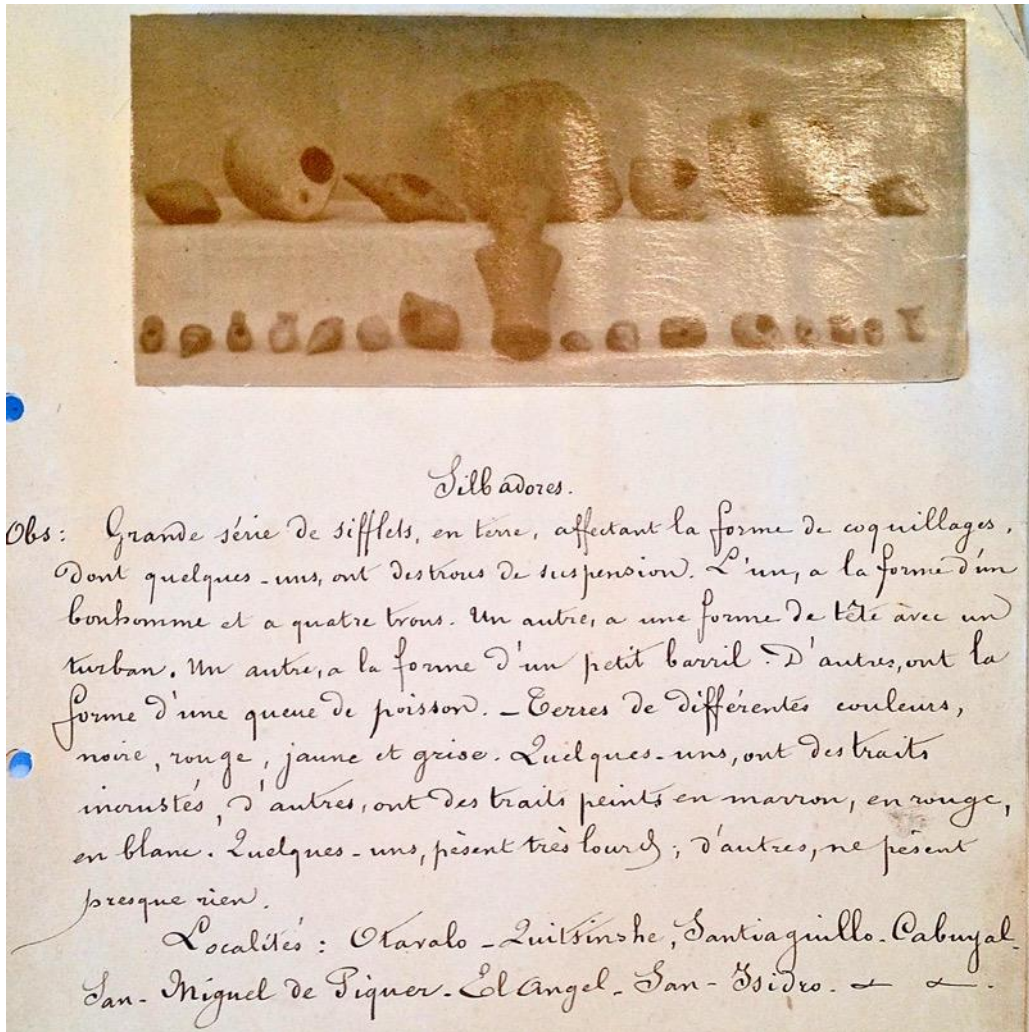 Silbadores.
Obs: Grande série de sifflets, en terre, affectant la forme de coquillages,
dont quelques-uns, ont des trous de suspension. L'un, a la forme d'un
bonhomme et a quatre trous. Un autre, a une forme de tête avec un
turban. Un autre, a la forme d'un petit barril. D'autres, ont la
forme d'une queue de poisson. - Terres de différentes couleurs,
noire, rouge, jaune et grise. Quelques-uns, ont des traits
incrustés, d'autres, ont des traits peints en marron, en rouge,
en blanc. Quelques-uns, pèsent très lourds; d'autres, ne pèsent
presque rien.
Localités: Otavalo - Quitsinshe, Santiaguillo. Cabuyal.
San-Miguel de Piquer. El Angel. San-Isidro.